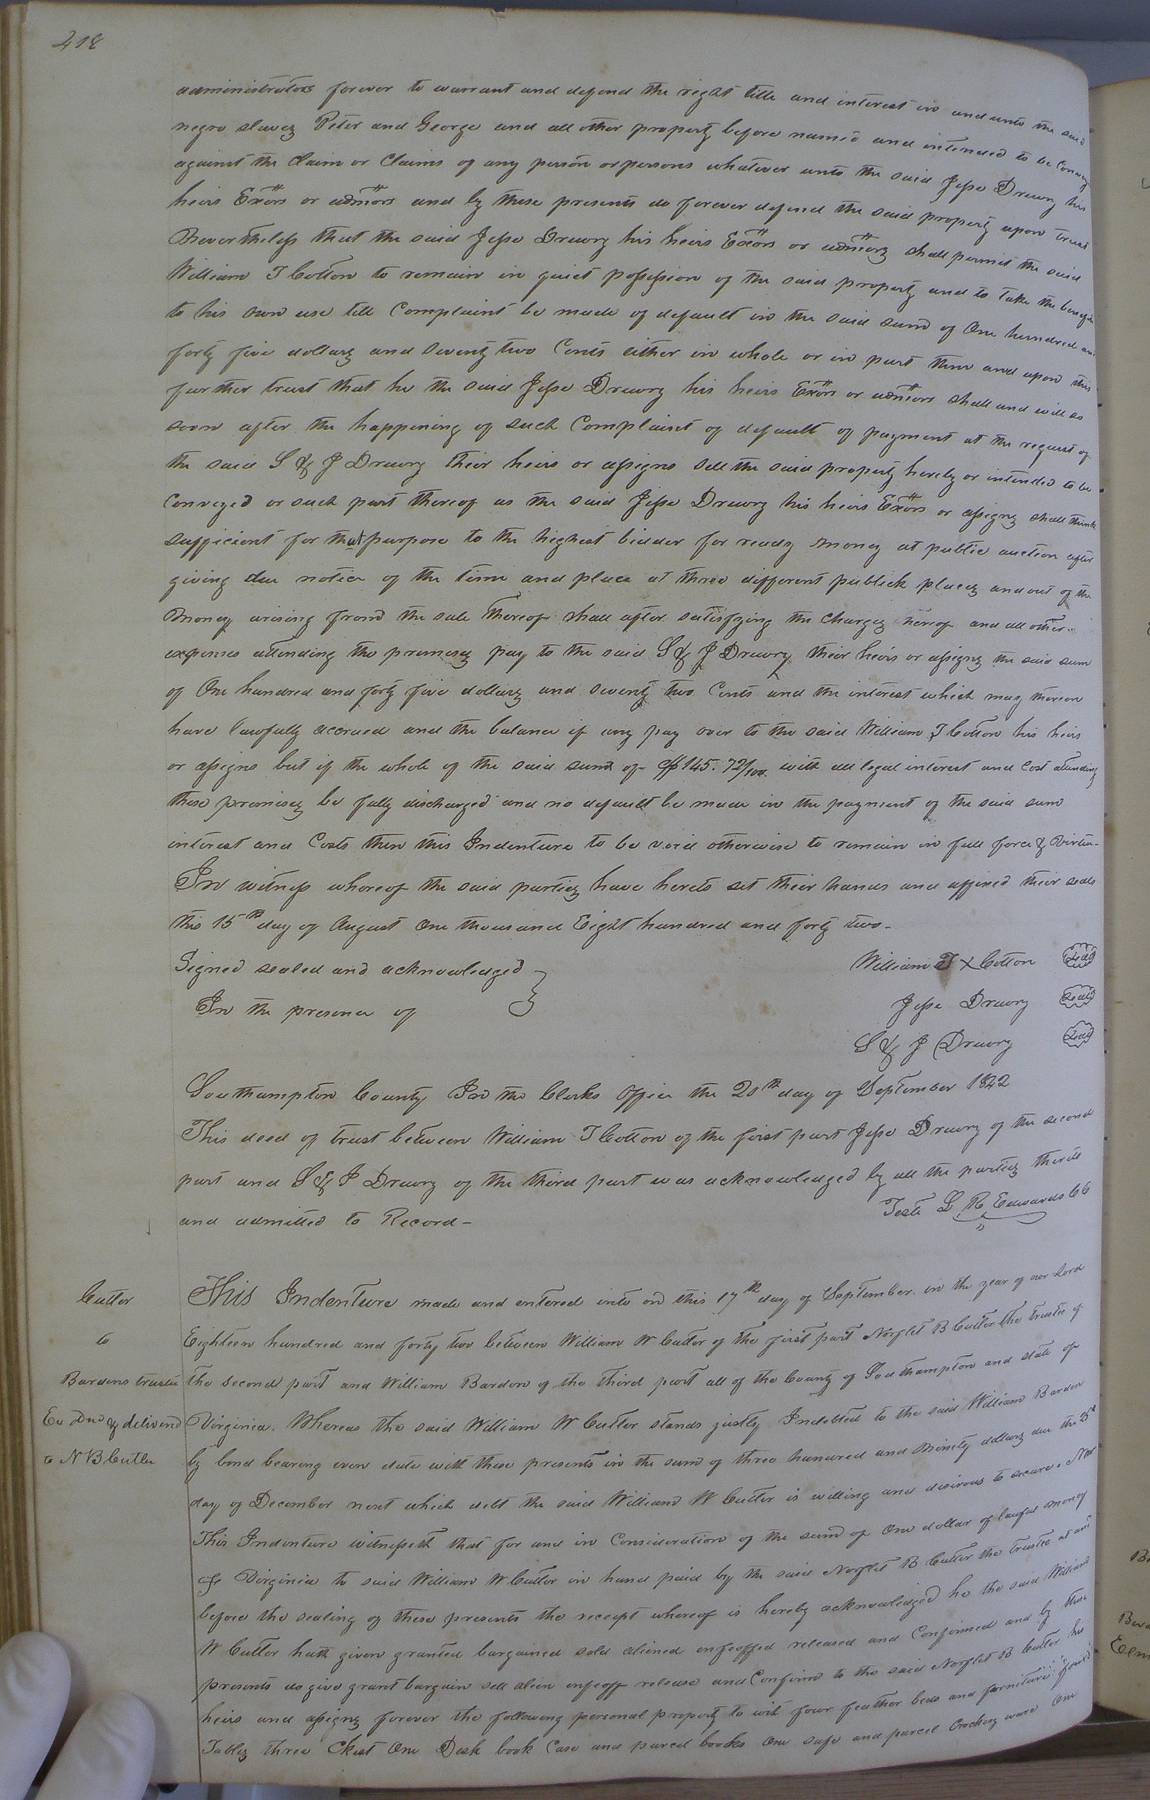 218
administrators forever to warrant and defend the right title and interest in and unto the said
negro slaves Peter and George and all other property before named and intended to be convey
against the claim or claims of any person or persons whatever unto the said Jesse Drewry his
heirs Exōrs or admōrs and by these presents do forever defend the said property upon trust
Nevertheless that the said Jesse Drewry his heirs Exōrs or admōrs shall permit the said
William T Cotton to remain in quiet possession of the said property and to take the benefit
to his own use till Complaint be made of default in the said sum of One hundred and
forty five dollars and seventy two Cents either in whole or in part then and upon this
further trust that he the said Jesse Drewry his heirs Exōrs or admōrs shall and will as
soon after the happening of such Complaint of default of payment at the request of
the said S & J Drewry their heirs or assigns sell the said property hereby or intended to be
Conveyed or such part thereof as the said Jesse Drewry his heirs Exōrs or assigns shall think
sufficient for that purpose to the highest bidder for ready money at public auction after
giving due notice of the time and place at three different publick places and out of the
money arising from the sale thereof shall after satisfying the Charges hereof and all other
expenses attending the premises pay to the said S & J Drewry their heirs or assigns the said sum
of One hundred and forty five dollars and seventy two Cents and the interest which may thereon
have lawfully accrued and the balance if any pay over to the said William T Cotton his heirs
or assigns but if the whole of the said sum of $145.72/100 with all legal interest and cost attending
these premises be fully discharged and no default be made in the payment of the said sum
interest and Costs then this Indenture to be void otherwise to remain in full force & Virtue-
In witness whereof the said parties have hereto set their hands and affixed their seals
this 15th day of August One thousand Eight hundred and forty two-
Signed sealed and acknowledged } William T X Cotton Seal
In the presence of Jesse Drewry Seal
S & J Drewry Seal
Southampton County In the Clerks Office the 20th day of September 1842
This deed of trust between William T Cotton of the first part Jesse Drewry of the second
part and S & J Drewry of the third part was acknowledged by all the parties thereto
and admitted to Record-
Teste L. R. Edwards CC
Cutler
to
Bardens trustee
Exd & delivered
to N B Cutler
This Indenture made and entered into on this 17th day of September in the year of our Lord
Eighteen hundred and forty two between William W Cutler of the first part Norflet B Cutler the trustee of
the second part and William Barden of the third part all of the County of Southampton and state of
Virginia. Whereas the said William W Cutler stands justly Indebted to the said William Barden
by bond bearing even date with these presents in the sum of three hundred and Ninety dollars due the 25th
day of December next which debt the said William W Cutler is willing and desirous to secure. Now
This Indenture witnesseth that for and in Consideration of the sum of One dollar of lawful money
of Virginia to said William W Cutler in hand paid by the said Norflet B Cutler the trustee at and
before the sealing of these presents the receipt whereof is hereby acknowledged he the said William
W Cutler hath given granted bargained sold aliened enfeoffed released and Confirmed and by these
presents do give grant bargain sell alien enfeoff release and Confirm to the said Norflet B Cutler his
heirs and assigns forever the following personal property to wit four feather beds and furniture
Tables three Chest One Desk book Case and parcel books One safe and parcel Crockery ware One